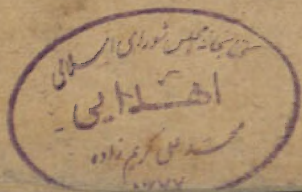 کتابخانه مجلس شورای اسلامی
اهدایی
محمد علی کریم زاده